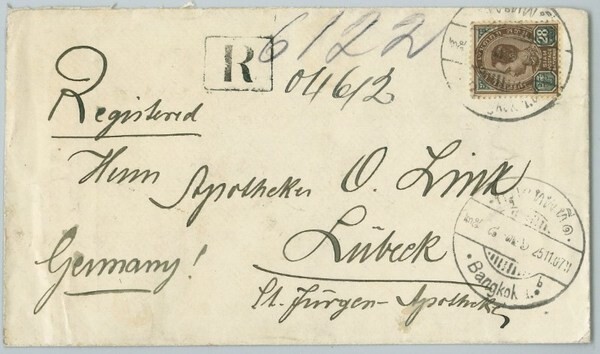 R
6122
28
Registered
04612
Herrn Apotheker O. Link
Lübeck
Germany!
St. Jürgen-Apotheke
25.11.07
Bangkok 1.